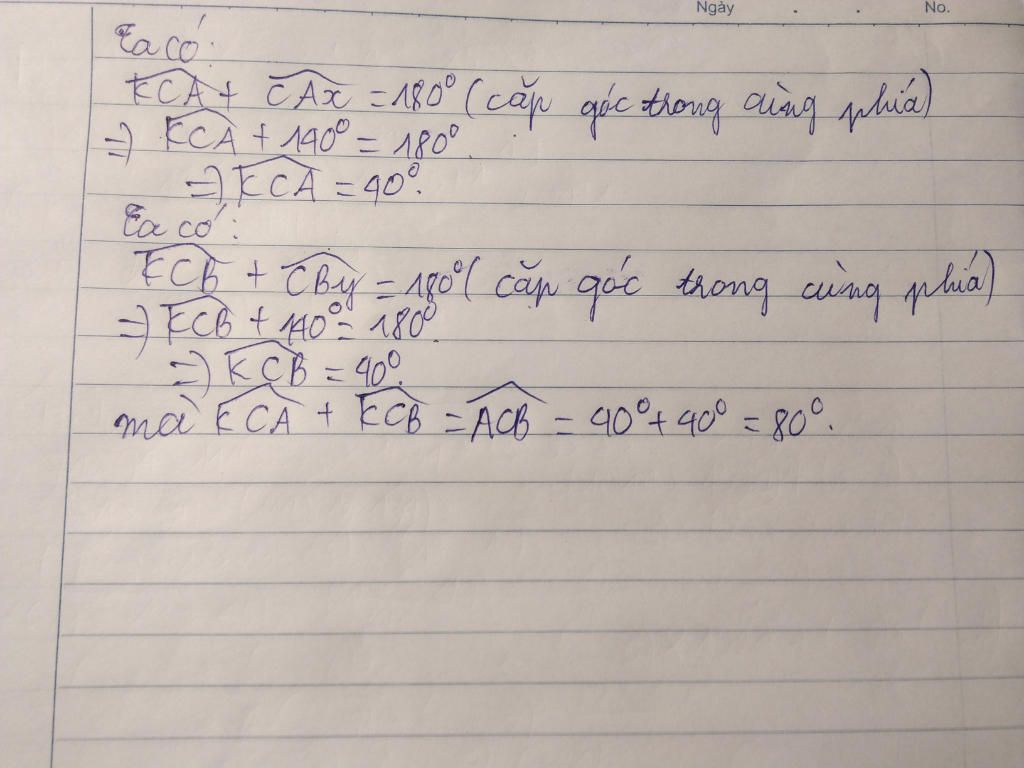 Ngày . . No.
Ta có:
\widehat{KCA} + \widehat{CAx} = 180° (cặp góc trong cùng phía)
=> \widehat{KCA} + 140° = 180°.
=> \widehat{KCA} = 40°.
Ta có:
\widehat{KCB} + \widehat{CBy} = 180° (cặp góc trong cùng phía)
=> \widehat{KCB} + 140° = 180°.
=> \widehat{KCB} = 40°.
mà \widehat{KCA} + \widehat{KCB} = \widehat{ACB} = 40° + 40° = 80°.